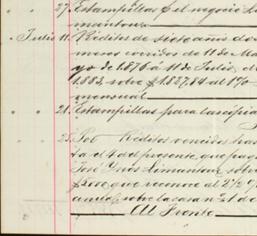 27. Estampillas p. el negocio Li
mantour
Julio 11. Réditos de siete años dos
meses corridos de 11 de Ma
yo de 1876 á 11 de Julio, de
1883, sobre $1837,84 al 1%
mensual
21. Estampillas para la cópia
23. Réditos vencidos has
ta el 4 del presente que pag
José Yves Limantour sobre
que reconoce al
anual, sobre la casa n. 1 de
Al Frente